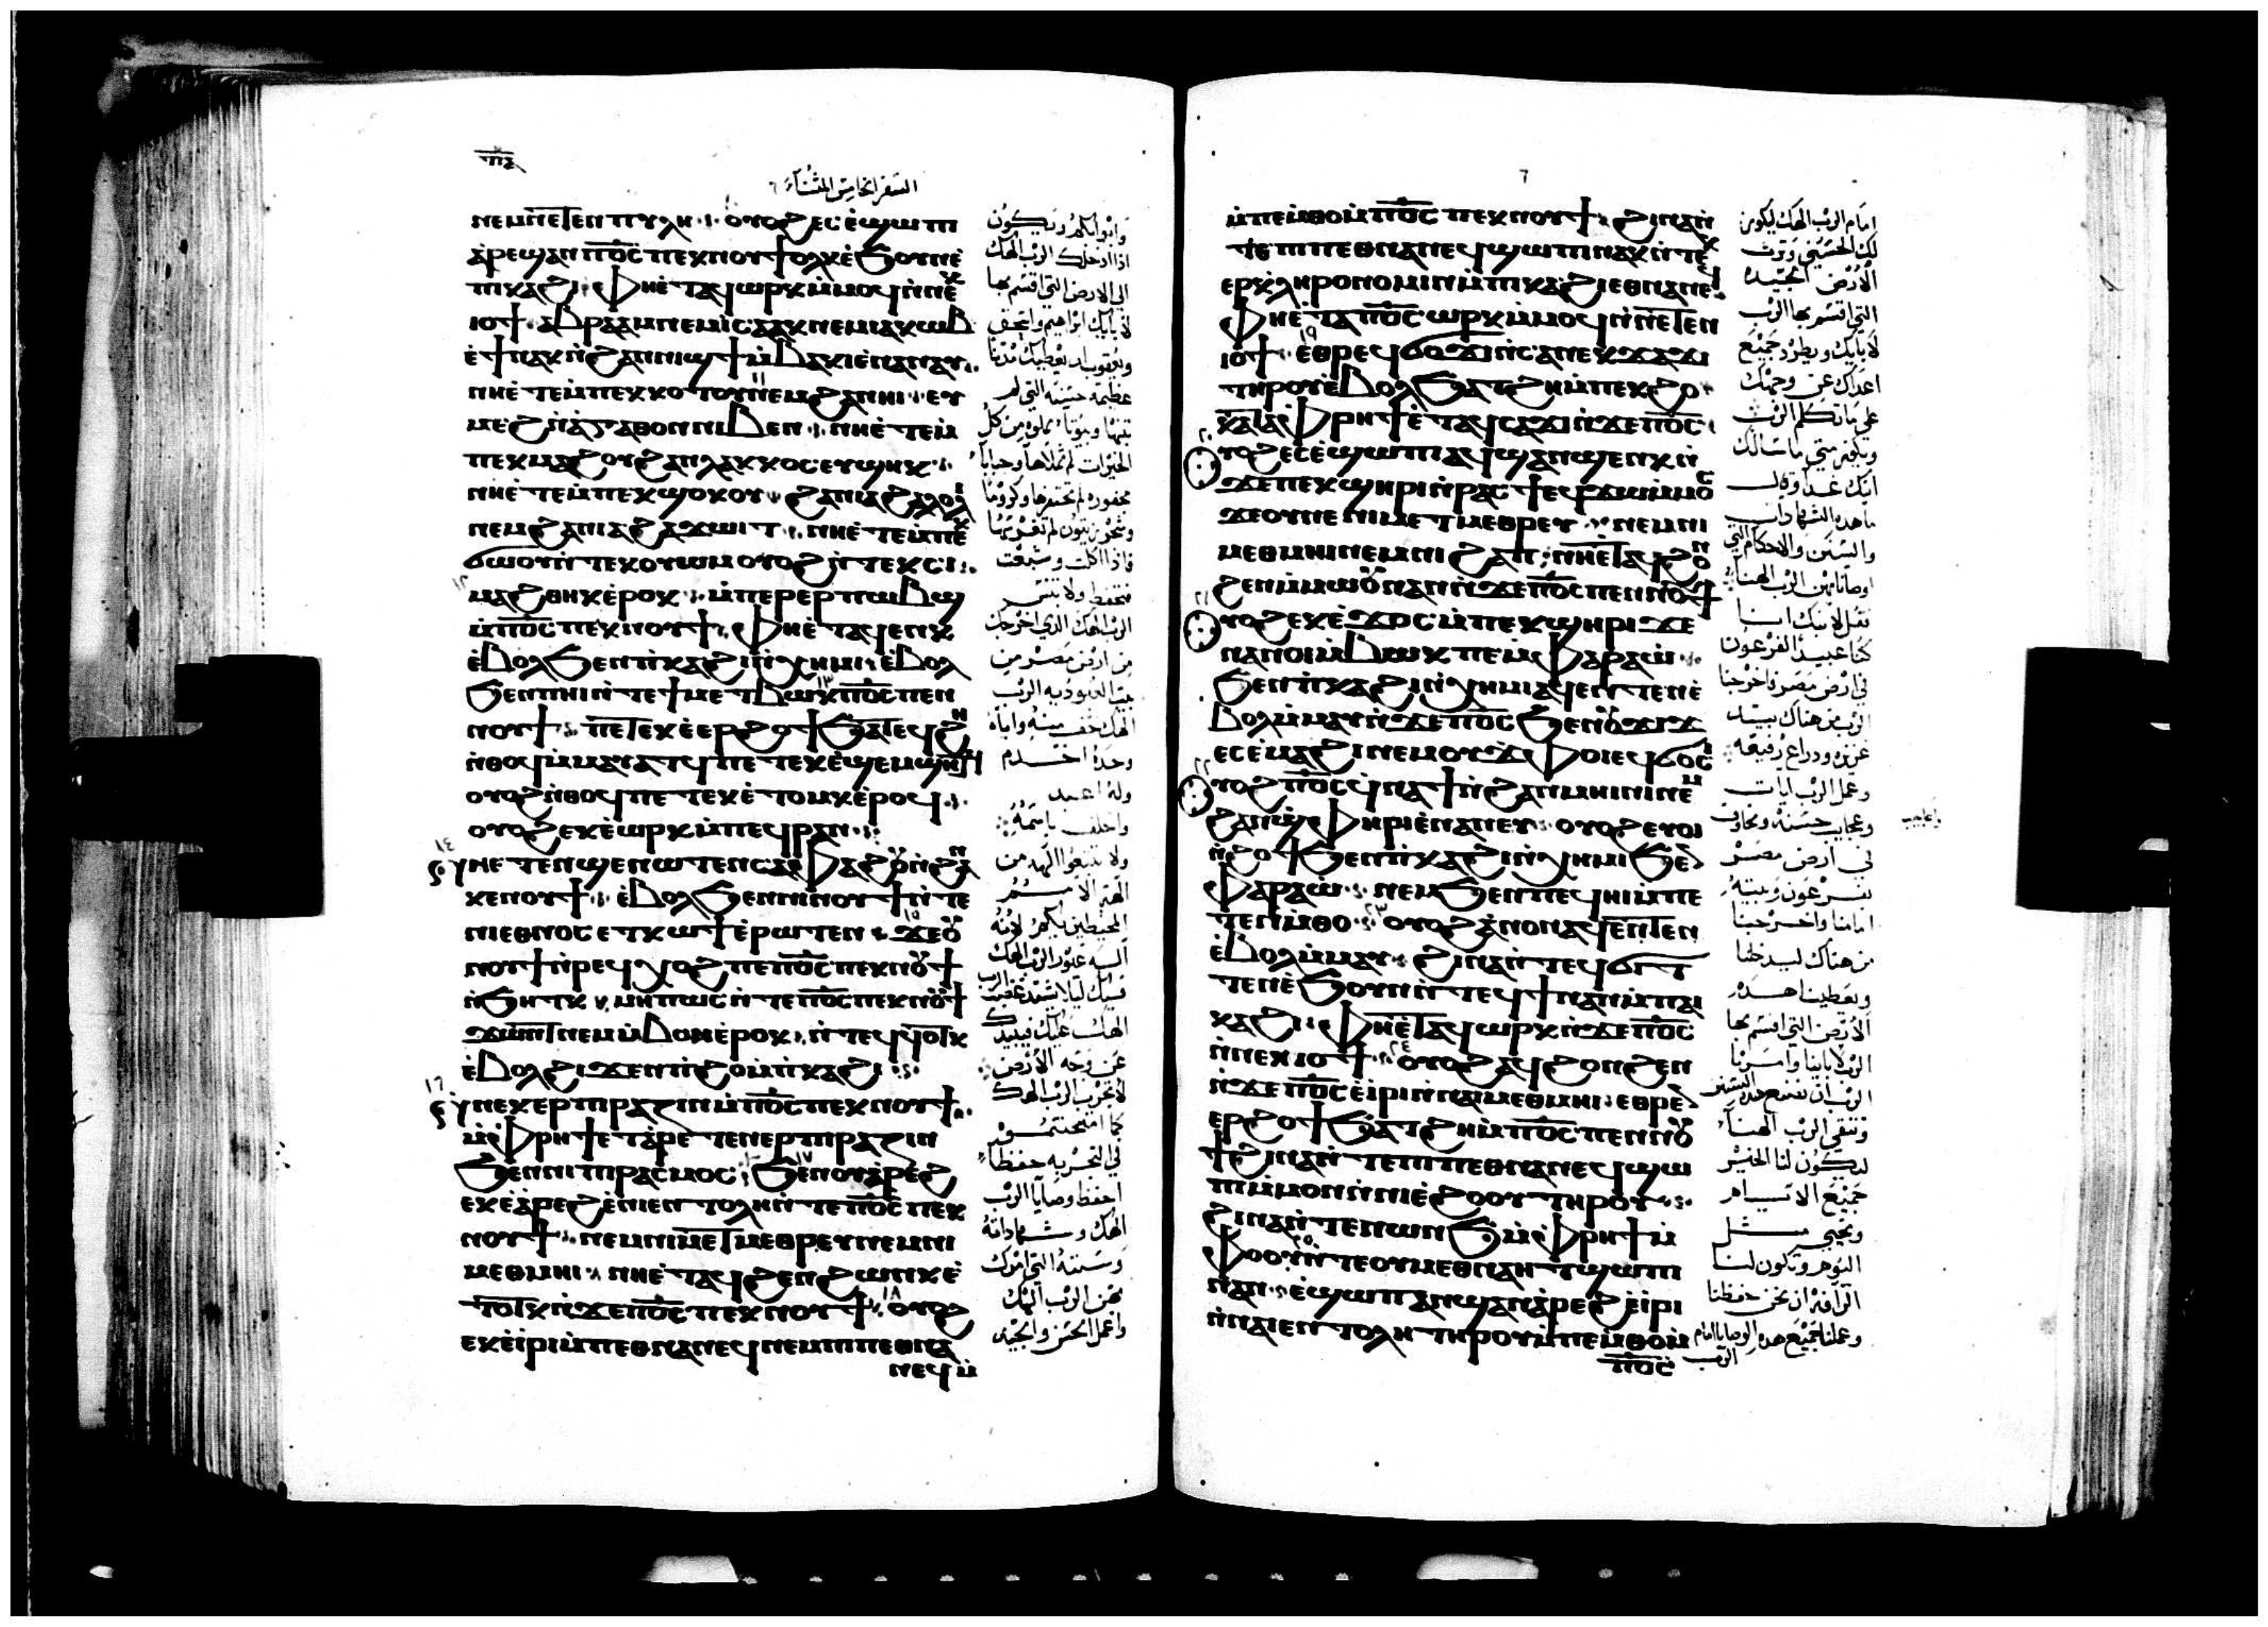 السفر الخامس المثناة ٦
ⲛⲉⲙⲛⲉⲧⲉⲛⲡⲩⲗⲏ ⲟⲩⲟϩⲉⲥⲉ̀ϣⲱⲡ
ⲁ̀ⲣⲉϣⲁⲛⲡ̅ⲟ̅ⲥ̅ ⲡⲉⲕⲛⲟⲩϯⲟⲗⲕ ⲉ̀ϧⲟⲩⲛⲉ̀
ⲡⲓⲕⲁϩⲓ ⲫⲏⲉ̀ⲧⲁϥⲱⲣⲕ ⲙ̀ⲙⲟϥ ⲛ̀ⲛⲉⲕ
ⲓⲟϯ ⲁⲃⲣⲁⲁⲙ ⲛⲉⲙ ⲓ̀ⲥⲁⲁⲕ ⲛⲉⲙ ⲓⲁⲕⲱⲃ
ⲉ̀ϯⲛⲁⲕ ⲛ̀ϩⲁⲛⲛⲓϣϯ ⲙ̀ⲃⲁⲕⲓ ⲉ̀ⲛⲁⲛⲁⲩ
ⲛⲏⲉ̀ⲧⲉⲙ̀ⲡⲉⲕⲕⲟⲧⲟⲩ ⲛⲉⲙϩⲁⲛⲏⲓ ⲉⲩ
ⲙⲉϩ ⲛ̀ⲁ̀ⲅⲁⲑⲟⲛ ⲛⲓⲃⲉⲛ ⲛⲏⲉ̀ⲧⲉⲙ̀
ⲡⲉⲕⲙⲁϩⲟⲩ ϩⲁⲛⲗⲁⲕⲕⲟⲥ ⲉⲩϣⲏⲕ
ⲛⲏⲉ̀ⲧⲉⲙ̀ⲡⲉⲕϣⲟⲕⲟⲩ ϩⲁⲛⲓⲁϩⲁⲗⲟⲗⲓ
ⲛⲉⲙϩⲁⲛⲓⲁϩϫⲱⲓⲧ ⲛⲏⲉ̀ⲧⲉⲙ̀ⲡⲉⲕ
ϭⲱⲟⲩ ⲛ̀ⲧⲉⲕⲟⲩⲱⲙ ⲟⲩⲟϩ ⲛ̀ⲧⲉⲕⲥⲓ
ⲙⲁϩⲑⲏⲕ ⲉ̀ⲣⲟⲕ ⲙ̀ⲡⲉⲣⲉⲣⲡⲱⲃϣ
ⲙ̀ⲡ̅ⲟ̅ⲥ̅ ⲡⲉⲕⲛⲟⲩϯ ⲫⲏⲉ̀ⲧⲁϥⲉⲛⲕ
ⲉ̀ⲃⲟⲗϧⲉⲛ ⲡ̀ⲕⲁϩⲓ ⲛ̀ⲭⲏⲙⲓ ⲉ̀ⲃⲟⲗ
ϧⲉⲛ ⲡⲏⲓ ⲛ̀ⲧⲉϯⲙⲉⲧⲃⲱⲕ ⲡ̅ⲟ̅ⲥ̅ ⲡⲉⲛ
ⲛⲟⲩϯ ⲡⲉⲧⲉⲕⲉ̀ⲉⲣϩⲟϯ ϧⲁⲧⲉϥϩⲏ
ⲛ̀ⲑⲟϥ ⲙ̀ⲙⲁⲩⲁⲧϥ ⲡⲉⲧⲉⲕⲉ̀ϣⲉⲙϣⲏⲧϥ
ⲟⲩⲟϩ ⲛ̀ⲑⲟϥ ⲡⲉⲧⲉⲕⲉ̀ⲧⲟⲙⲕ ⲉ̀ⲣⲟϥ
ⲟⲩⲟϩ ⲉⲕⲉ̀ⲱⲣⲕ ⲙ̀ⲡⲉϥⲣⲁⲛ
ⲛⲉⲧⲉⲛϣⲉⲛⲱⲧⲉⲛ ⲥⲁⲫⲁϩⲟⲩ ⲛ̀ϩⲁⲛ
ⲕⲉⲛⲟⲩϯ ⲉ̀ⲃⲟⲗϧⲉⲛ ⲛⲓⲛⲟⲩϯ ⲛ̀ⲧⲉ
ⲛⲓⲉⲑⲛⲟⲥ ⲉⲧⲕⲱϯ ⲉ̀ⲣⲱⲧⲉⲛ ϫⲉⲟⲩ
ⲛⲟⲩϯ ⲛ̀ⲣⲉϥⲭⲟϩ ⲡⲉ ⲡ̅ⲟ̅ⲥ̅ ⲡⲉⲕⲛⲟⲩϯ
ⲛ̀ϧⲏⲧⲕ ⲙⲏⲡⲱⲥ ⲛ̀ⲧⲉⲡ̅ⲟ̅ⲥ̅ ⲡⲉⲕⲛⲟⲩϯ
ϫⲱⲛⲧ ⲛⲉⲙ̀ⲃⲟⲛ ⲉ̀ⲣⲟⲕ ⲛ̀ⲧⲉϥϥⲟⲧⲕ
ⲉ̀ⲃⲟⲗϩⲓϫⲉⲛ ⲡ̀ϩⲟ ⲙ̀ⲡ̀ⲕⲁϩⲓ
ⲛⲉⲕⲉⲣⲡⲓⲣⲁⲍⲓⲛ ⲙ̀ⲡ̅ⲟ̅ⲥ̅ ⲡⲉⲕⲛⲟⲩϯ
ⲙ̀ⲫⲣⲏϯ ⲉⲧⲁⲣⲉⲧⲉⲛⲉⲣⲡⲓⲣⲁⲍⲓⲛ
ϧⲉⲛ ⲡⲓⲡⲓⲣⲁⲥⲙⲟⲥ ϧⲉⲛ ⲟⲩⲁ̀ⲣⲉϩ
ⲉⲕⲉ̀ⲁ̀ⲣⲉϩ ⲉ̀ⲛⲓⲉⲛⲧⲟⲗⲏ ⲛ̀ⲧⲉⲡ̅ⲟ̅ⲥ̅ ⲡⲉⲕ
ⲛⲟⲩϯ ⲛⲉⲙⲛⲓⲙⲉⲧⲙⲉⲑⲣⲉⲩ ⲛⲉⲙⲛⲓ
ⲙⲉⲑⲙⲏⲓ ⲛⲏⲉ̀ⲧⲁϥϩⲉⲛϩⲱⲛⲕ ⲉ̀
ⲧⲟⲧⲕ ⲛ̀ϫⲉⲡ̅ⲟ̅ⲥ̅ ⲡⲉⲕⲛⲟⲩϯ ⲟⲩⲟϩ
ⲉⲕⲉ̀ⲓⲣⲓ ⲙ̀ⲡⲉⲑⲛⲁⲛⲉϥ ⲛⲉⲙⲡⲓⲡⲉⲑⲛⲁ
ⲛⲉϥ ⲙ̀
وابوابكم ويكون
اذا ادخلك الرب الهك
الى الارض التى اقسم بها
لابايك ابراهيم واسحق
ويعقوب ان يعطيك مدنا
عظيمة حسنة التى لم
تبنها وبيوتا مملوه من كل
الخيرات لم تملاها وجبابا
محفوره لم تحفرها وكروما
وشجر زيتون لم تغرسها
فاذا اكلت وشبعت
فتحفظ ولا تنس
الرب الهك الذى اخرجك
من ارض مصر من
بيت العبوديه الرب
الهك خف منه واياه
وحده اخدم
وله اعبد
واحلف باسمه
ولا تتبعوا الهه من
الهة الامم
المحيطين بكم لانه
اله غيور الرب الهك
فيك ليلا يشتد غضب الرب
الهك عليك فيبيدك
عن وجه الارض
لا تجرب الرب الهك
كما امتحنتموه
فى التجربه حفظا
احفظ وصايا الرب
الهك وشهاداته
وسننه التى امرك
بهن الرب الهك
واعمل الحسن والجيد
٦
ⲙ̀ⲡⲉⲙ̀ⲑⲟ ⲙ̀ⲡ̅ⲟ̅ⲥ̅ ⲡⲉⲕⲛⲟⲩϯ ϩⲓⲛⲁ ⲛ̀
ⲧⲉⲡⲓⲡⲉⲑⲛⲁⲛⲉϥ ϣⲱⲡⲓ ⲛⲁⲕ ⲛ̀ⲧⲉⲕ
ⲉⲣⲕ̀ⲗⲏⲣⲟⲛⲟⲙⲓⲛ ⲙ̀ⲡⲓⲕⲁϩⲓ ⲉⲑⲛⲁⲛⲉϥ
ⲫⲏⲉ̀ⲧⲁⲡ̅ⲟ̅ⲥ̅ ⲱⲣⲕ ⲙ̀ⲙⲟϥ ⲛ̀ⲛⲉⲧⲉⲛ
ⲓⲟϯ ⲉⲑⲣⲉϥϭⲟϫⲓ ⲛ̀ⲥⲁⲛⲉⲕϫⲁϫⲓ
ⲧⲏⲣⲟⲩ ⲉ̀ⲃⲟⲗϧⲁⲧϩⲏ ⲙ̀ⲡⲉⲕϩⲟ
ⲕⲁⲧⲁⲫⲣⲏϯ ⲉ̀ⲧⲁϥⲥⲁϫⲓ ⲛ̀ϫⲉⲡ̅ⲟ̅ⲥ̅
ⲟⲩⲟϩ ⲉⲥⲉ̀ϣⲱⲡⲓ ⲁϥϣⲁⲛϣⲉⲛⲕ ⲛ̀
ϫⲉⲡⲉⲕϣⲏⲣⲓ ⲛ̀ⲣⲁⲥϯ ⲉϥϫⲱ ⲙ̀ⲙⲟⲥ
ϫⲉⲟⲩ ⲛⲉ ⲛⲓⲙⲉⲧⲙⲉⲑⲣⲉⲩ ⲛⲉⲙⲛⲓ
ⲙⲉⲑⲙⲏⲓ ⲛⲉⲙⲛⲓϩⲁⲡ ⲛⲏⲉ̀ⲧⲁϥϩⲟⲛ
ϩⲉⲛ ⲙ̀ⲙⲱⲟⲩ ⲛⲁⲛ ⲛ̀ϫⲉⲡ̅ⲟ̅ⲥ̅ ⲡⲉⲛⲛⲟⲩϯ
ⲟⲩⲟϩ ⲉⲕⲉ̀ϫⲟⲥ ⲙ̀ⲡⲉⲕϣⲏⲣⲓ ϫⲉ
ⲛⲁⲛⲟⲓ ⲙ̀ⲃⲱⲕ ⲡⲉ ⲙ̀ⲫⲁⲣⲁⲱ
ϧⲉⲛ ⲡ̀ⲕⲁϩⲓ ⲛ̀ⲭⲏⲙⲓ ⲁϥⲉⲛⲧⲉⲛ ⲉ̀
ⲃⲟⲗ ⲙ̀ⲙⲁⲩ ⲛ̀ϫⲉⲡ̅ⲟ̅ⲥ̅ ϧⲉⲛ ⲟⲩϫⲓϫ
ⲉⲥⲉ̀ⲙⲁϩⲓ ⲛⲉⲙ ⲟⲩϫⲫⲟⲓ ⲉϥϭⲟⲥⲓ
ⲟⲩⲟϩ ⲡ̅ⲟ̅ⲥ̅ ⲉϥⲛⲁϯ ⲛ̀ϩⲁⲛⲙⲏⲓⲛⲓ ⲛⲉⲙ
ϩⲁⲛϣ̀ⲫⲏⲣⲓ ⲉ̀ⲛⲁⲛⲉⲩ ⲟⲩⲟϩ ⲉⲩⲟⲓ
ⲛ̀ϩⲟϯ ϧⲉⲛ ⲡ̀ⲕⲁϩⲓ ⲛ̀ⲭⲏⲙⲓ ϧⲉⲛ
ⲫⲁⲣⲁⲱ ⲛⲉⲙϧⲉⲛ ⲡⲉϥⲏⲓ ⲙ̀ⲡⲉ
ⲧⲉⲛⲙ̀ⲑⲟ ⲟⲩⲟϩ ⲁ̀ⲛⲟⲛ ⲁϥⲉⲛⲧⲉⲛ
ⲉ̀ⲃⲟⲗ ⲙ̀ⲙⲁⲩ ϩⲓⲛⲁ ⲛ̀ⲧⲉϥϭⲓⲧ
ⲧⲉⲛ ⲉ̀ϧⲟⲩⲛ ⲛ̀ⲧⲉϥϯ ⲛⲁⲛ ⲙ̀ⲡⲁⲓ
ⲕⲁϩⲓ ⲫⲏⲉ̀ⲧⲁϥⲱⲣⲕ ⲛ̀ϫⲉⲡ̅ⲟ̅ⲥ̅
ⲛ̀ⲛⲉⲕⲓⲟϯ ⲟⲩⲟϩ ⲁϥϩⲟⲛϩⲉⲛ
ⲛ̀ϫⲉⲡ̅ⲟ̅ⲥ̅ ⲉ̀ⲓⲣⲓ ⲛ̀ⲛⲁⲓⲙⲉⲑⲙⲏⲓ ⲉⲑⲣⲉⲛ
ⲉⲣϩⲟϯ ϧⲁⲧϩⲏ ⲙ̀ⲡ̅ⲟ̅ⲥ̅ ⲡⲉⲛⲛⲟⲩ
ϯ ϩⲓⲛⲁ ⲛ̀ⲧⲉⲡⲓⲡⲉⲑⲛⲁⲛⲉϥ ϣⲱ
ⲡⲓ ⲙ̀ⲙⲟⲛ ⲛ̀ⲛⲓⲉ̀ϩⲟⲟⲩ ⲧⲏⲣⲟⲩ
ϩⲓⲛⲁ ⲛ̀ⲧⲉⲛⲱⲛϧ ⲙ̀ⲫⲣⲏϯ ⲙ̀
ⲫⲟⲟⲩ ⲛ̀ⲧⲉⲟⲩⲙⲉⲑⲛⲁⲏⲧ ϣⲱⲡⲓ
ⲛⲁⲛ ⲉ̀ϣⲱⲡ ⲁⲛϣⲁⲛⲁ̀ⲣⲉϩ ⲉ̀ⲓⲣⲓ
ⲛ̀ⲛⲁⲓⲉⲛⲧⲟⲗⲏ ⲧⲏⲣⲟⲩ ⲙ̀ⲡⲉⲙ̀ⲑⲟ ⲙ̀
ⲡ̅ⲟ̅ⲥ̅
امام الرب الهك ليكون
لك الحسنى وترث
الارض الجيده
التى اقسم بها الرب
لابايك ويطرد جميع
اعداك عن وجهك
على ما تكلم الرب
ويكون متى ما سالك
ابنك غدا وقايلا
ما هذه الشهادات
والسنن والاحكام التى
اوصانا بهن الرب الهنا
فقل لابنك اننا
كنا عبيدا لفرعون
فى ارض مصر فاخرجنا
الرب من هناك بيد
عزيزه ودراع رفيعه
وعمل الرب ايات
وعجايب حسنة ومخاوف
فى ارض مصر
بفرعون وبيته
امامنا واخرجنا
من هناك ليدخلنا
ويعطينا هذه
الارض التى اقسم بها
الرب لابايك وامرنا
الرب ان نصنع هذه السنن
ونتقى الرب الهنا
ليكون لنا الخير
جميع الايام
ونحيى مثل
اليوم وتكون لنا
الرافة ان نحن حفظنا
وعملنا جميع هذه الوصايا امام
الرب